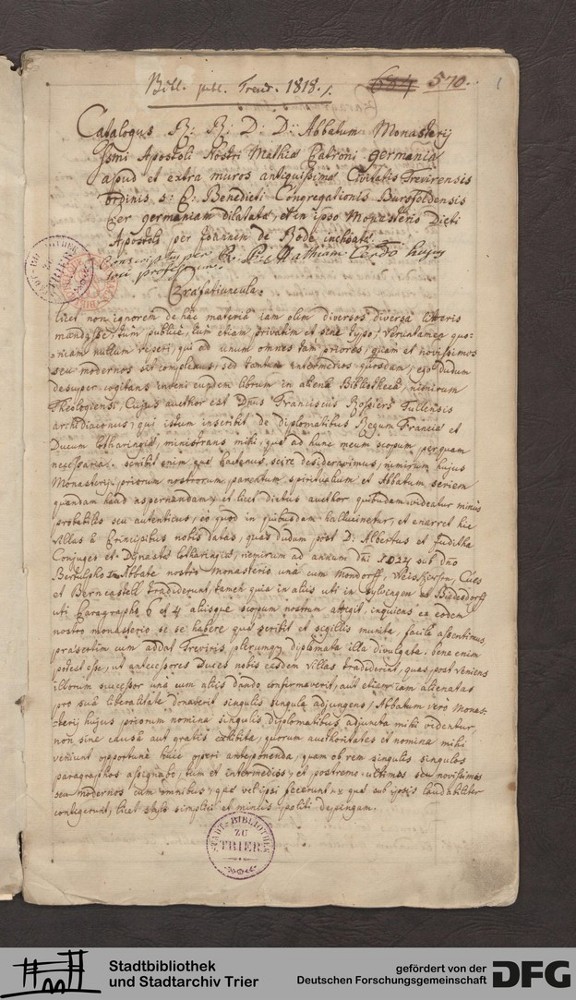 Bibl. publ. Trev. 1818. 684 570. 1
Catalogus R: R: D: D: Abbatum Monasterij
Apostoli Nostri Mathiæ Patroni germaniæ
apud et extra muros antiquissimæ Civitatis Trevirensis
ordinis S: P: Benedicti Congregationis Bursfeldensis
per germaniam dilatatæ, et in ipso Monasterio Dicti
Apostoli per Joannem de Rode inchoatæ
Conscriptus per R. P. Mathiam huius
loci professum.
Præfatiuncula.
licet non ignorem de hac materia iam olim diversos diversa litteris
mandasse, tum publicè, tum etiam privatim et sine typo, veruntamen quo-
niam nullum reperi, qui ad unum omnes tam priores, quam et novissimos
seu modernos sit complexus, sed tantum intermedios quosdam, ego dudum
desuper cogitans inveni eundem librum in aliena Bibliotheca, nimirum
Theologiensi, Cuius author est Dnus Franciscus Rosiers Tullensis
archidiaconus, qui istum inscribit de diplomatibus Regum Franciæ et
Ducum Lotharingiæ, ministrans mihi, quæ ad hunc meum scopum perquam
necessaria. scribit enim quæ hactenus scire desideravimus, nimirum hujus
Monasterij priorum nostrorum, parentum spiritualium et Abbatum seriem
quandam haud aspernandam, et licet dictus author quibusdam videatur minus
probabilis seu autenticus, eo quod in quibusdam hallucinetur, et enarret hic
villas à Principibus nobis datas, quas dudum post D: Albertus et Juditha
Conjuges et Dynastæ Lotharingiæ, nimirum ad annum Dni 1027 sub dno
Bertulpho Abbate nostri Monasterio unà cum Mondorff, Cues
et Berncastell tradiderunt, tamen quia in alijs uti in Polyßagen et Bidendorff
uti Paragrapho 6 et 4 alijsque scopum nostrum attigit, inquiens ea eodem
nostro monasterio se se habere quæ scribit et sigillis munita, facile assentimus
præsertim cum addat Treviris, plerumque diplomata illa divulgata. bene enim
potest esse, ut antecessores Duces nobis easdem villas tradiderint, quas post veniens
illorum successor unà cum alijs dando confirmaverit, aut etiam iam alienatas
pro suâ liberalitate donaverit singulis singula adjungens, Abbatum vero Monas-
terij hujus priorum nomina singulis diplomatibus adjuncta mihi videntur
non sine causâ aut gratis exhibita, quorum authoritates et nomina mihi
veniunt opportunè huic operi anteponenda, quam ob rem singulis singulos
paragraphos assignabo, tum et intermedios, et postremò ultimos seu novissimos
seu modernos cum omnibus, quæ vel ipsi fecerunt aut quæ ab ipsis laudabiliter
contigerunt, licet stylo simplici et minus polito depingam.
STADT-BIBLIOTHEK
ZU
TRIER
STADT-BIBLIOTHEK
ZU
TRIER
Stadtbibliothek
und Stadtarchiv Trier
gefördert von der
Deutschen Forschungsgemeinschaft
DFG